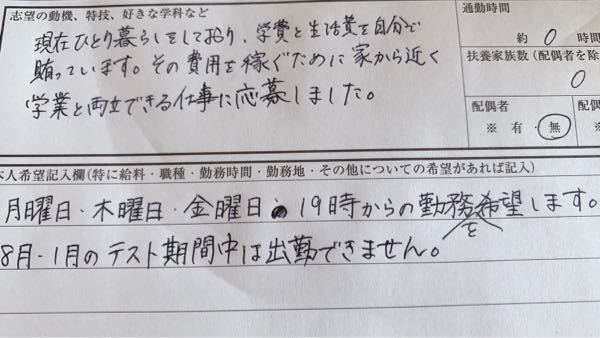 志望の動機、特技、好きな学科など
現在ひとり暮らしをしており、学費と生活費を自分で
賄っています。その費用を稼ぐために家から近く
学業と両立できる仕事に応募しました。
通勤時間
約 0 時間
扶養家族数(配偶者を除
0
配偶者
※ 有・無
配
※
人希望記入欄(特に給料・職種・勤務時間・勤務地・その他についての希望があれば記入)
月曜日・木曜日・金曜日・19時からの勤務を希望します。
8月・1月のテスト期間中は出勤できません。